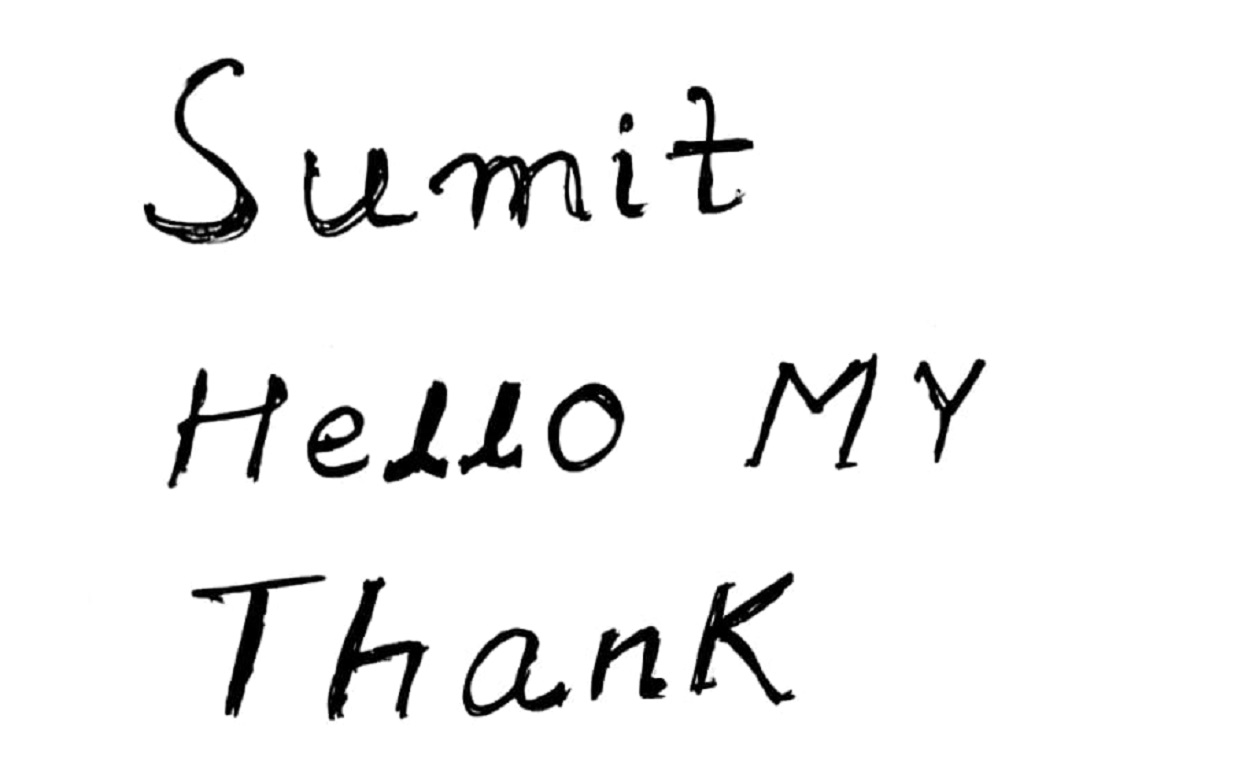 Sumit
Hello MY
Thank